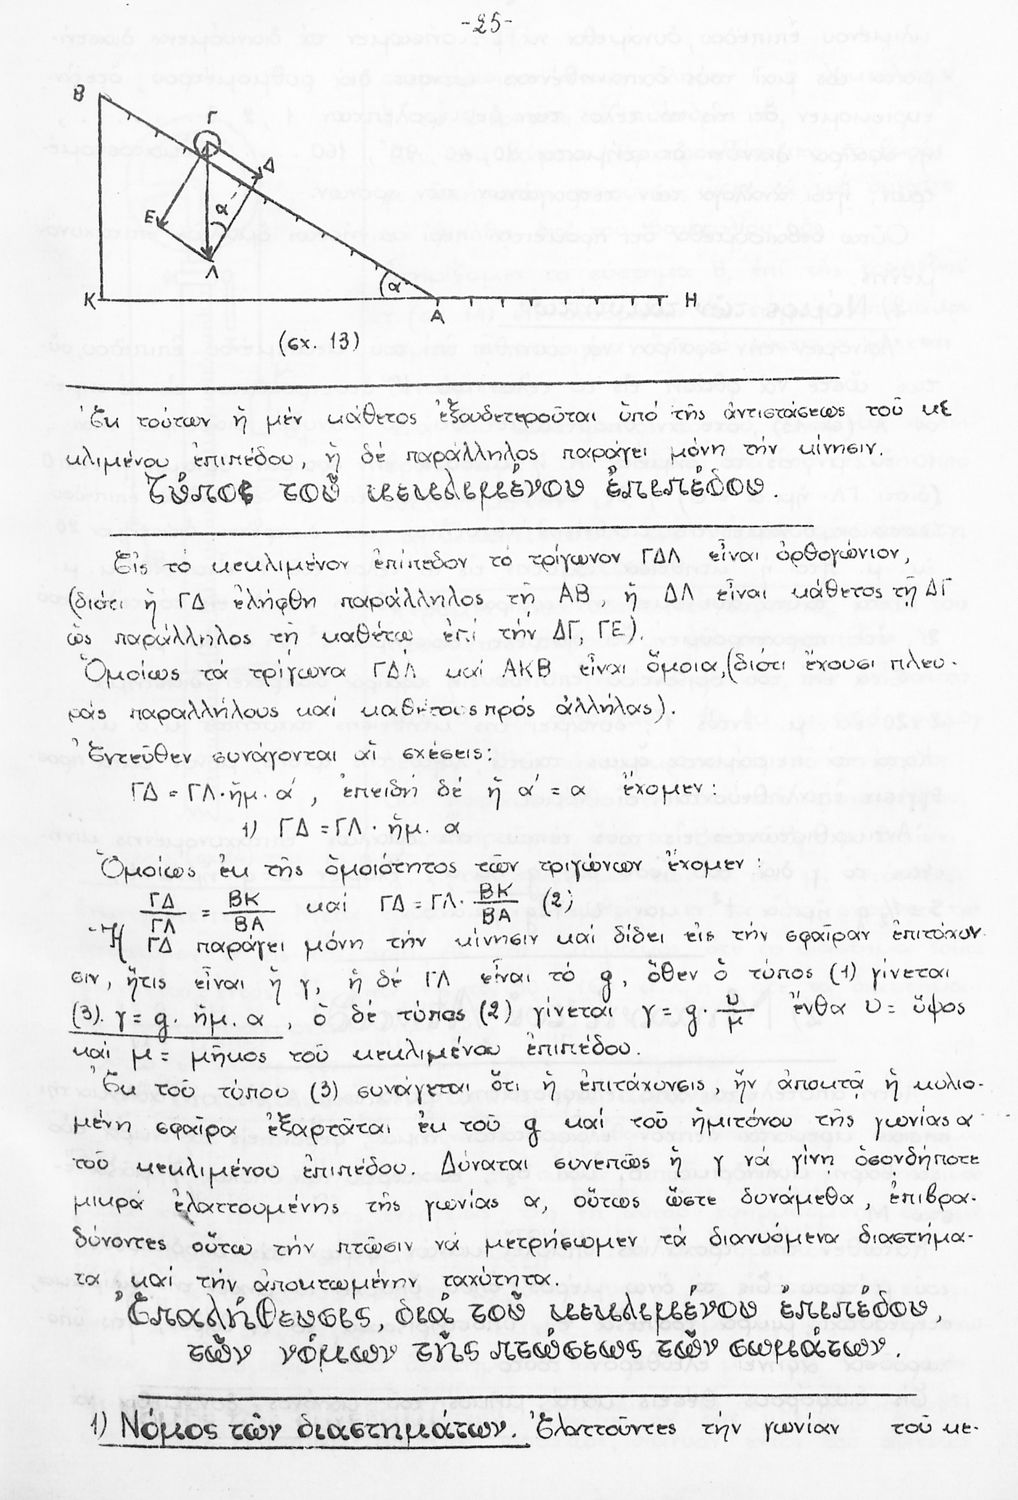 -25-
Β
Γ
Δ
Ε
α΄
Λ
α
Κ
Α
Η
(σχ. 13)
Ἐκ τούτων ἡ μέν κάθετος ἐξουδετεροῦται ὑπό τῆς ἀντιστάσεως τοῦ κε
κλιμένου ἐπιπέδου, ἡ δέ παράλληλος παράγει μόνη τήν κίνησιν.
Τύπος τοῦ κεκλιμένου ἐπιπέδου.
Εἰς τό κεκλιμένον ἐπίπεδον τό τρίγωνον ΓΔΛ εἶναι ὀρθογώνιον,
(διότι ἡ ΓΔ ἐλήφθη παράλληλος τῇ ΑΒ, ἡ ΔΛ εἶναι κάθετος τῇ ΔΓ
ὡς παράλληλος τῇ καθέτῳ ἐπί τήν ΔΓ, ΓΕ).
Ὁμοίως τά τρίγωνα ΓΔΛ καί ΑΚΒ εἶναι ὅμοια, (διότι ἔχουσι πλευ-
ράς παραλλήλους καί καθέτους πρός ἀλλήλας).
Ἐντεῦθεν συνάγονται αἱ σχέσεις:
ΓΔ = ΓΛ·ἡμ. α΄, ἐπειδή δέ ἡ α΄ = α ἔχομεν:
1) ΓΔ = ΓΛ · ἡμ. α
Ὁμοίως ἐκ τῆς ὁμοιότητος τῶν τριγώνων ἔχομεν:
ΓΔ/ΓΛ = ΒΚ/ΒΑ καί ΓΔ = ΓΛ· ΒΚ/ΒΑ (2)
Ἡ ΓΔ παράγει μόνη τήν κίνησιν καί δίδει εἰς τήν σφαῖραν ἐπιτάχυν-
σιν, ἥτις εἶναι ἡ γ, ἡ δέ ΓΛ εἶναι τό g, ὅθεν ὁ τύπος (1) γίνεται
(3). γ = g. ἡμ. α, ὁ δέ τύπος (2) γίνεται γ = g · υ/μ ἔνθα υ = ὕψος
καί μ = μῆκος τοῦ κεκλιμένου ἐπιπέδου.
Ἐκ τοῦ τύπου (3) συνάγεται ὅτι ἡ ἐπιτάχυνσις, ἥν ἀποκτᾷ ἡ κυλιο-
μένη σφαῖρα ἐξαρτᾶται ἐκ τοῦ g καί τοῦ ἡμιτόνου τῆς γωνίας α
τοῦ κεκλιμένου ἐπιπέδου. Δύναται συνεπῶς ἡ γ νά γίνῃ ὁσονδήποτε
μικρά ἐλαττουμένης τῆς γωνίας α, οὕτως ὥστε δυνάμεθα, ἐπιβρα-
δύνοντες οὕτω τήν πτῶσιν νά μετρήσωμεν τά διανυόμενα διαστήμα-
τα καί τήν ἀποκτωμένην ταχύτητα.
Ἐπαλήθευσις, διά τοῦ κεκλιμένου ἐπιπέδου,
τῶν νόμων τῆς πτώσεως τῶν σωμάτων.
1) Νόμος τῶν διαστημάτων. Ἐλαττοῦντες τήν γωνίαν τοῦ κε-